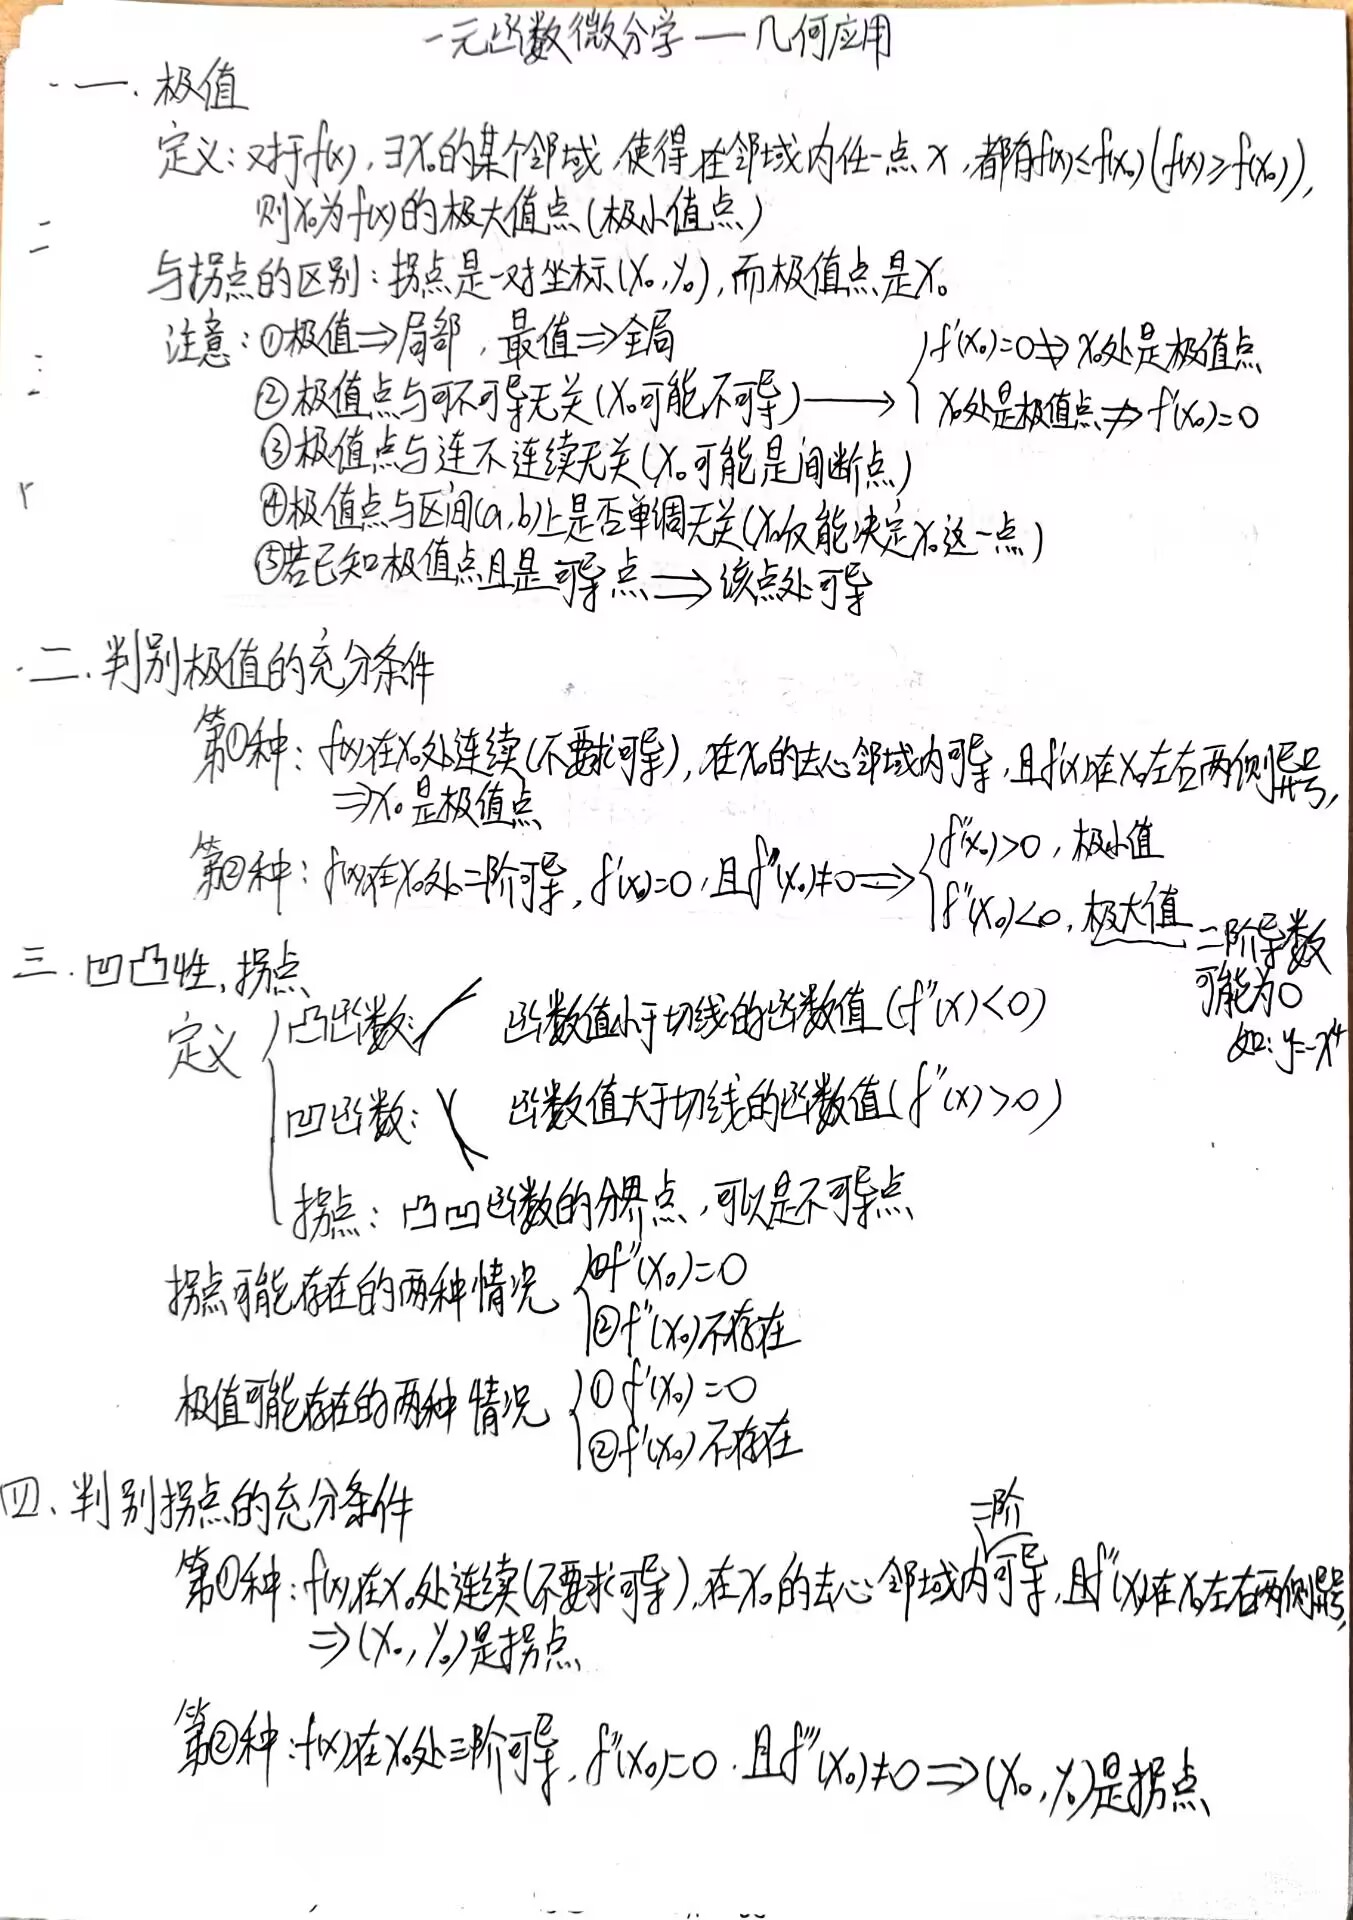 一元函数微分学——几何应用
一. 极值
定义: 对于f(x), ∃x₀的某个邻域, 使得在邻域内任一点x, 都有f(x)≤f(x₀)(f(x)≥f(x₀)),
则x₀为f(x)的极大值点(极小值点)
与拐点的区别: 拐点是一对坐标(x₀,y₀), 而极值点是x₀
注意: ①极值⇒局部, 最值⇒全局
②极值点与可不可导无关(x₀可能不可导)⟶{f'(x₀)=0⇏x₀处是极值点
x₀处是极值点⇏f'(x₀)=0
③极值点与连不连续无关(x₀可能是间断点)
④极值点与区间(a,b)上是否单调无关(x₀仅能决定x₀这一点)
⑤若已知极值点且是可导点⟹该点处可导
二. 判别极值的充分条件
第①种: f(x)在x₀处连续(不要求可导), 在x₀的去心邻域内可导, 且f'(x)在x₀左右两侧异号,
⇒x₀是极值点
第②种: f(x)在x₀处二阶可导, f'(x₀)=0, 且f''(x₀)≠0⟹{f''(x₀)>0, 极小值
f''(x₀)<0, 极大值
二阶导数
可能为0
如: y=-x⁴
三. 凹凸性, 拐点
定义{凸函数: 函数值小于切线的函数值(f''(x)<0)
凹函数: 函数值大于切线的函数值(f''(x)>0)
拐点: 凸凹函数的分界点, 可以是不可导点
拐点可能存在的两种情况{①f''(x₀)=0
②f''(x₀)不存在
极值可能存在的两种情况{①f'(x₀)=0
②f'(x₀)不存在
四. 判别拐点的充分条件
二阶
第①种: f(x)在x₀处连续(不要求可导), 在x₀的去心邻域内可导, 且f''(x)在x₀左右两侧异号,
⇒(x₀,y₀)是拐点
第②种: f(x)在x₀处三阶可导, f''(x₀)=0. 且f'''(x₀)≠0⟹(x₀,y₀)是拐点